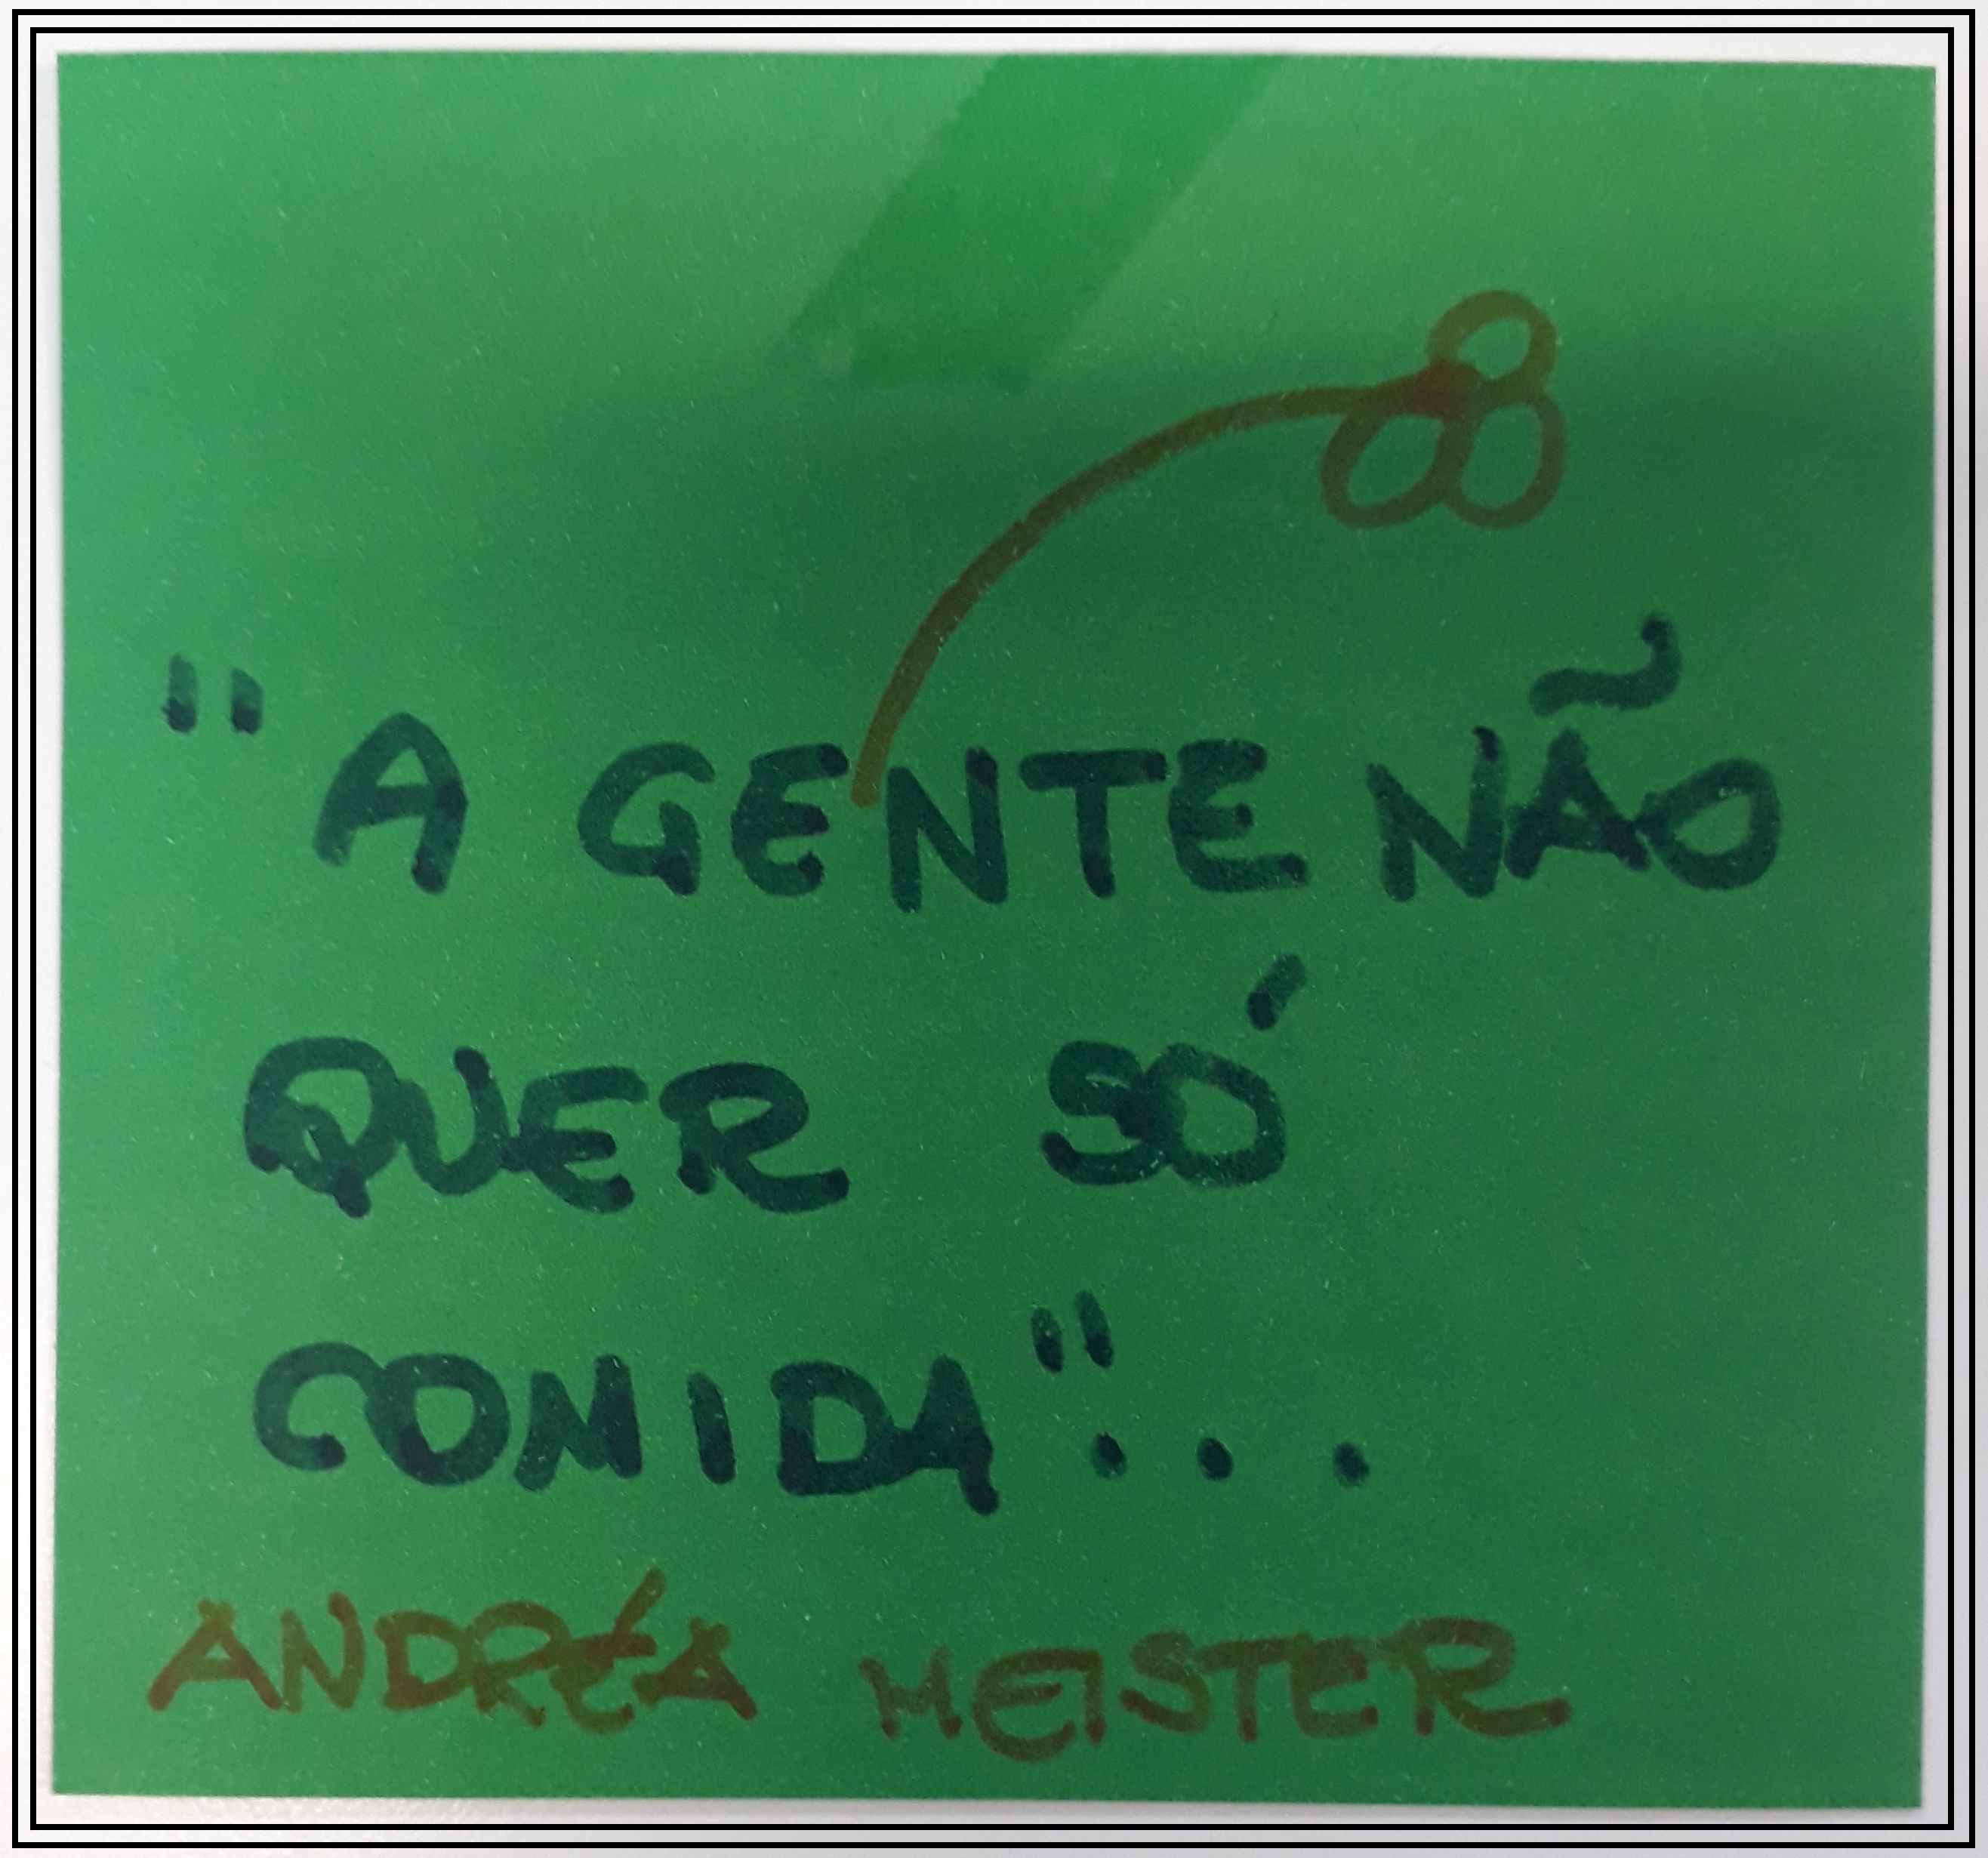 "A GENTE NÃO
QUER SÓ
COMIDA"...
ANDRÉA MEISTER